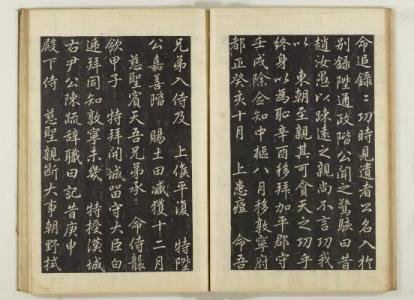 命追錄二功時見遺者公名入於
別錄陞通政階公聞之驚駭曰昔
趙汝愚以疎遠之親尚不言功我
以 東朝至親其可貪天之功乎
終身以爲恥辛酉移拜加平郡守
壬戌除僉知中樞八月移敦寧府
都正癸亥十月 上患痘 命吾
兄弟入侍及 上候平復 特陞
公嘉善階 賜土田臧獲十二月
慈聖賓天吾兄弟承 命侍殯
歛甲子 特拜開城留守大臣白
違拜同知敦寧未幾 特授漢城
右尹公陳疏辭職曰記昔庚申
殿下侍 慈聖親斷大事朝野拭